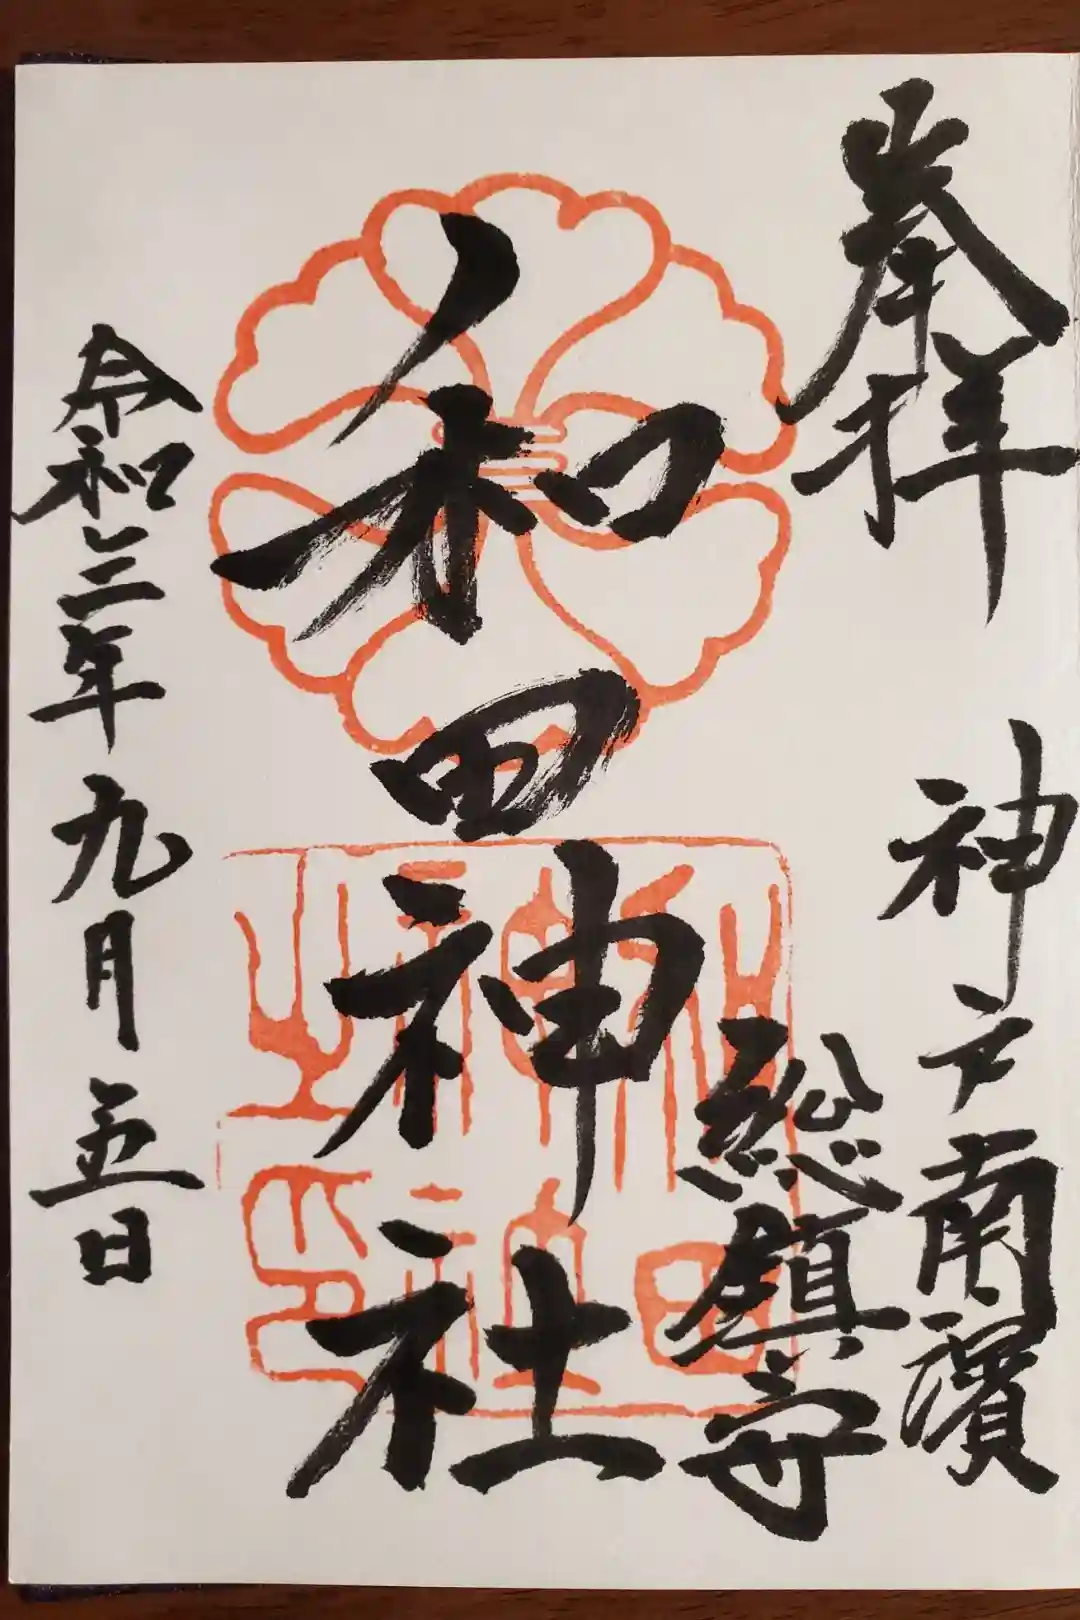 奉拝
神戸南濱
総鎮守
和田神社
令和三年九月五日
和田
神社
之印